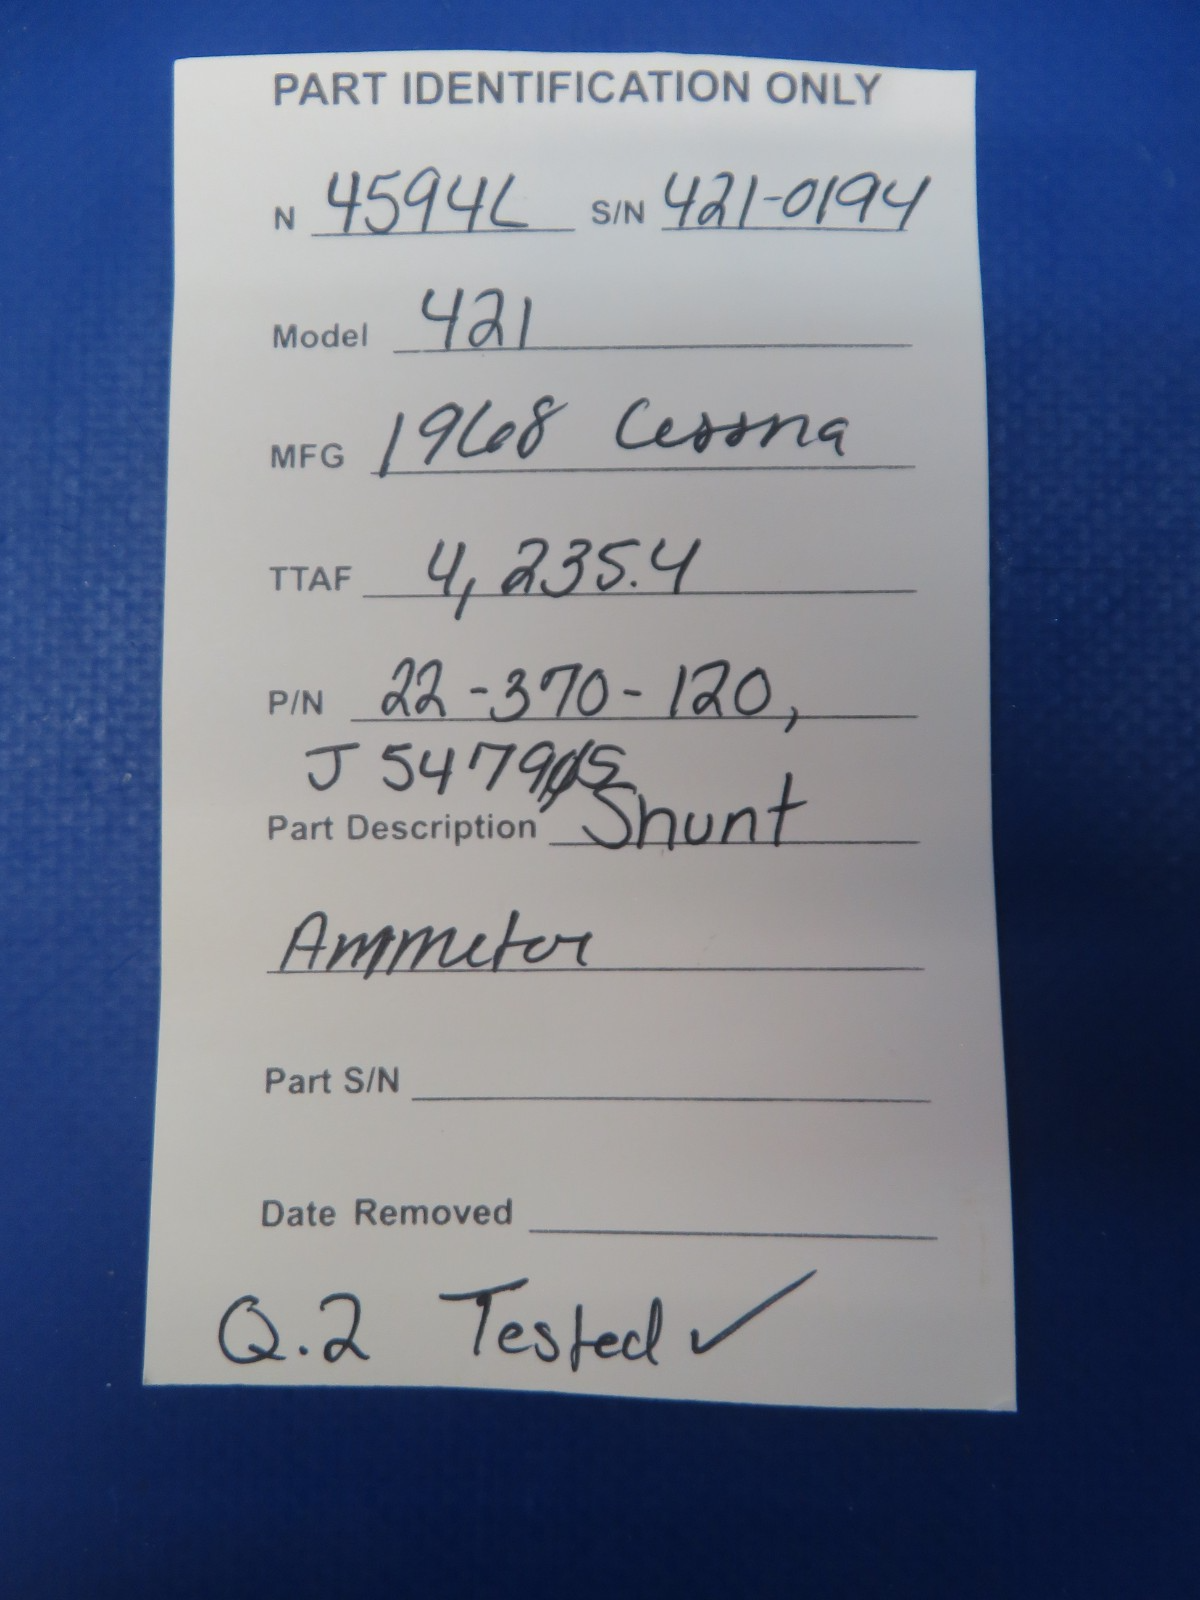 PART IDENTIFICATION ONLY
N 4594L S/N 421-0194
Model 421
MFG 1968 Cessna
TTAF 4,235.4
P/N 22-370-120,
J 5479Ø5
Part Description Shunt
Ammeter
Part S/N
Date Removed
Q.2 Tested ✓